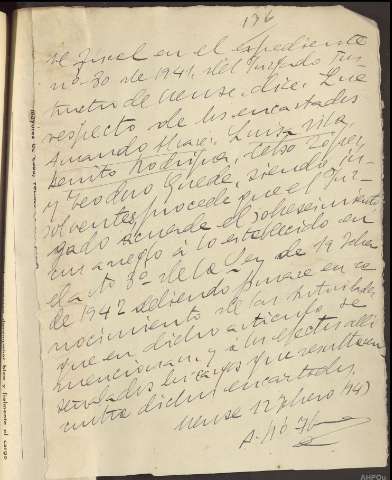 136
el Fiscal en el expediente
nº 30 de 1941 del Juzgado Ins-
tructor de Orense, dice: Que
respecto de los encartados
Amando Alvarez, Luis Vila,
Benito Rodríguez, Celso López
y Teodoro Guede, siendo in-
solventes, procede que el Juz-
gado acuerde el sobreseimiento
con arreglo a lo establecido en
el artº 8º de la Ley de 19 Febrero
de 1942 debiendo ponerse en co-
nocimiento de las Autoridades
que en dicho artículo se
mencionan y a los efectos allí
señalados los cargos que resultan
contra dichos encartados.
Orense 12 Enero 1943
AHPOu